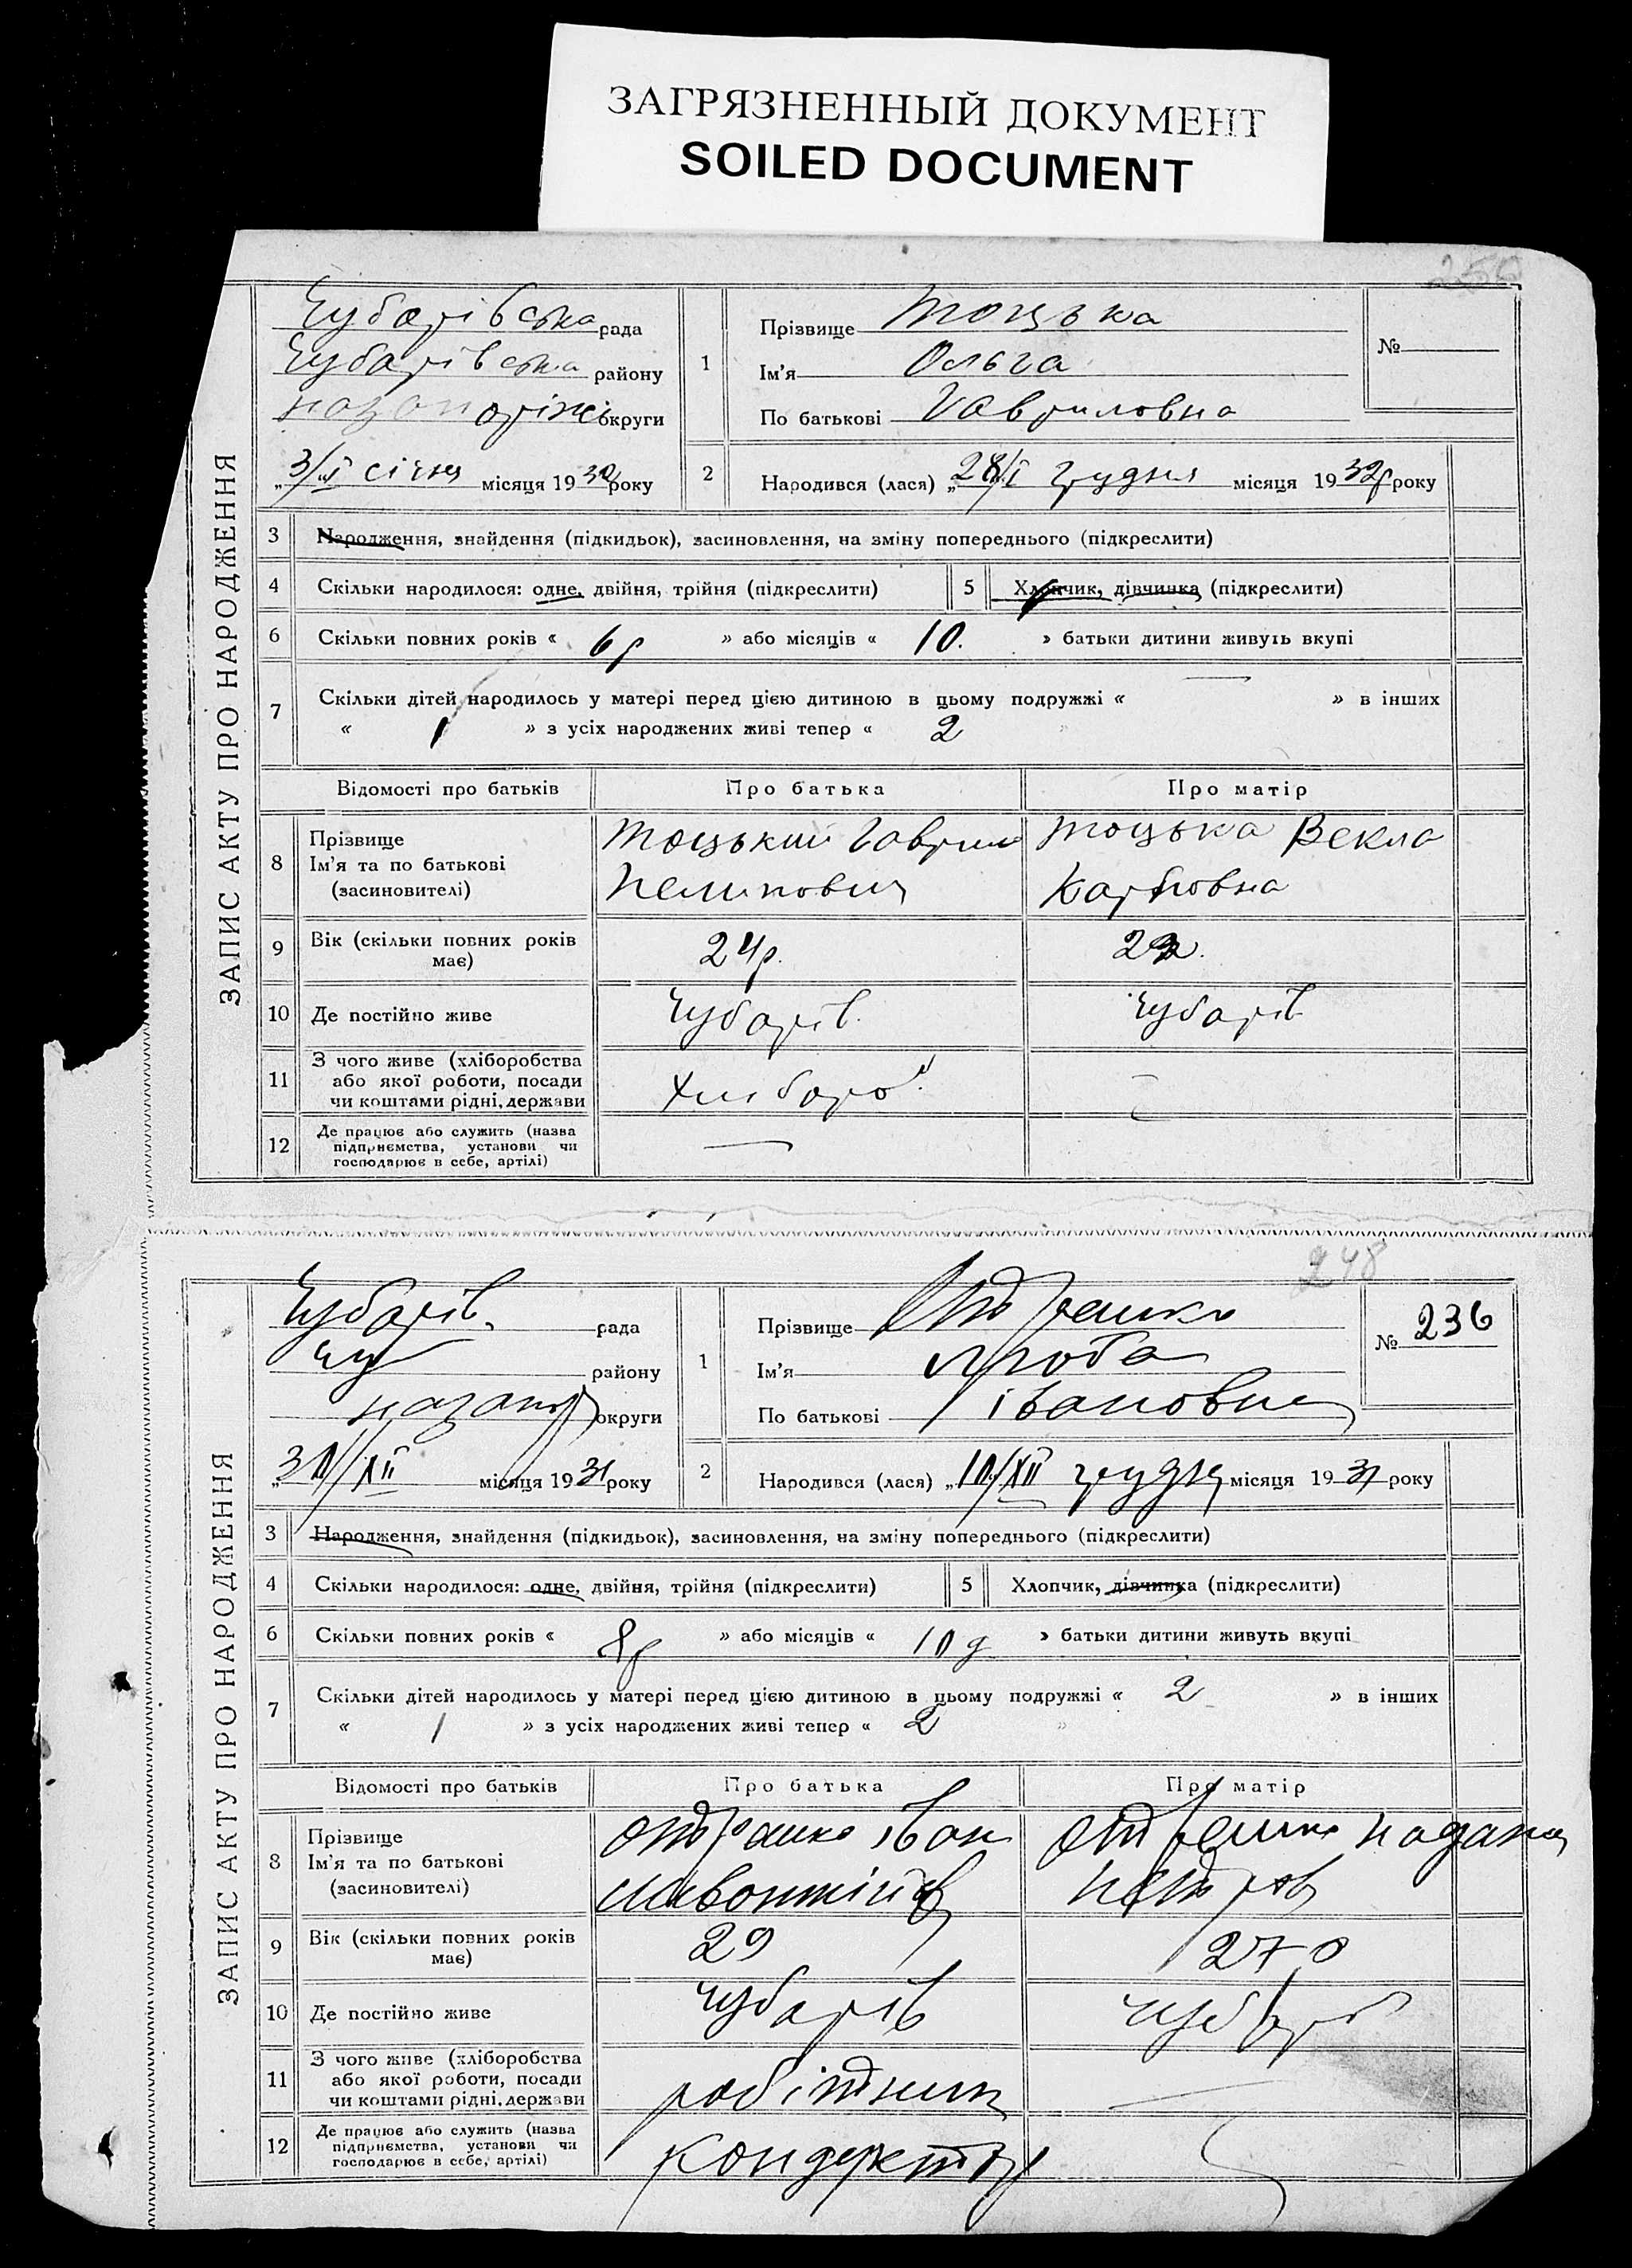 ЗАГРЯЗНЕННЫЙ ДОКУМЕНТ
SOILED DOCUMENT
250
ЗАПИС АКТУ ПРО НАРОДЖЕННЯ
Чубарівська рада
Чубарівська району
округи
3/I січня місяця 1932 року
1
Прізвище Тоцька
Ім'я Ольга
По батькові Гавриловна
№
2
Народився (лася) „28/I грудня місяця 19 32р року
3 Народження, знайдення (підкидьок), засиновлення, на зміну попереднього (підкреслити)
4 Скільки народилося: одне, двійня, трійня (підкреслити)
5 Хлопчик, дівчинка (підкреслити)
6 Скільки повних років « 6 р » або місяців « 10. » батьки дитини живуть вкупі
7 Скільки дітей народилось у матері перед цією дитиною в цьому подружжі « — » в інших
« 1 » з усіх народжених живі тепер « 2 »
Відомості про батьків Про батька Про матір
8 Прізвище
Ім'я та по батькові
(засиновителі)
Тоцький Гаврило
Пелипович
Тоцька Векла
Карповна
9 Вік (скільки повних років
має)
24р.
10 Де постійно живе Чубарів. Чубарів
11 З чого живе (хліборобства
або якої роботи, посади
чи коштами рідні, держави
Хлібороб. —
12 Де працює або служить (назва
підприємства, установи чи
господарює в себе, артілі)
—
248
ЗАПИС АКТУ ПРО НАРОДЖЕННЯ
Чубарів. рада
Чу району
округи
31/XII місяця 1931 року
1
Прізвище Отрешко
Ім'я
По батькові Івановна
№ 236
2
Народився (лася) „10/XII грудня місяця 19 31 року
3 Народження, знайдення (підкидьок), засиновлення, на зміну попереднього (підкреслити)
4 Скільки народилося: одне, двійня, трійня (підкреслити)
5 Хлопчик, дівчинка (підкреслити)
6 Скільки повних років « 8р » або місяців « 10 » батьки дитини живуть вкупі
7 Скільки дітей народилось у матері перед цією дитиною в цьому подружжі « 2 » в інших
« 1 » з усіх народжених живі тепер « 2 »
Відомості про батьків Про батька Про матір
8 Прізвище
Ім'я та по батькові
(засиновителі)
Отрешко Іван
Отрешко
Петров
9 Вік (скільки повних років
має)
29 27
10 Де постійно живе Чубарів Чубарів
11 З чого живе (хліборобства
або якої роботи, посади
чи коштами рідні, держави
робітник —
12 Де працює або служить (назва
підприємства, установи чи
господарює в себе, артілі)
кондуктор